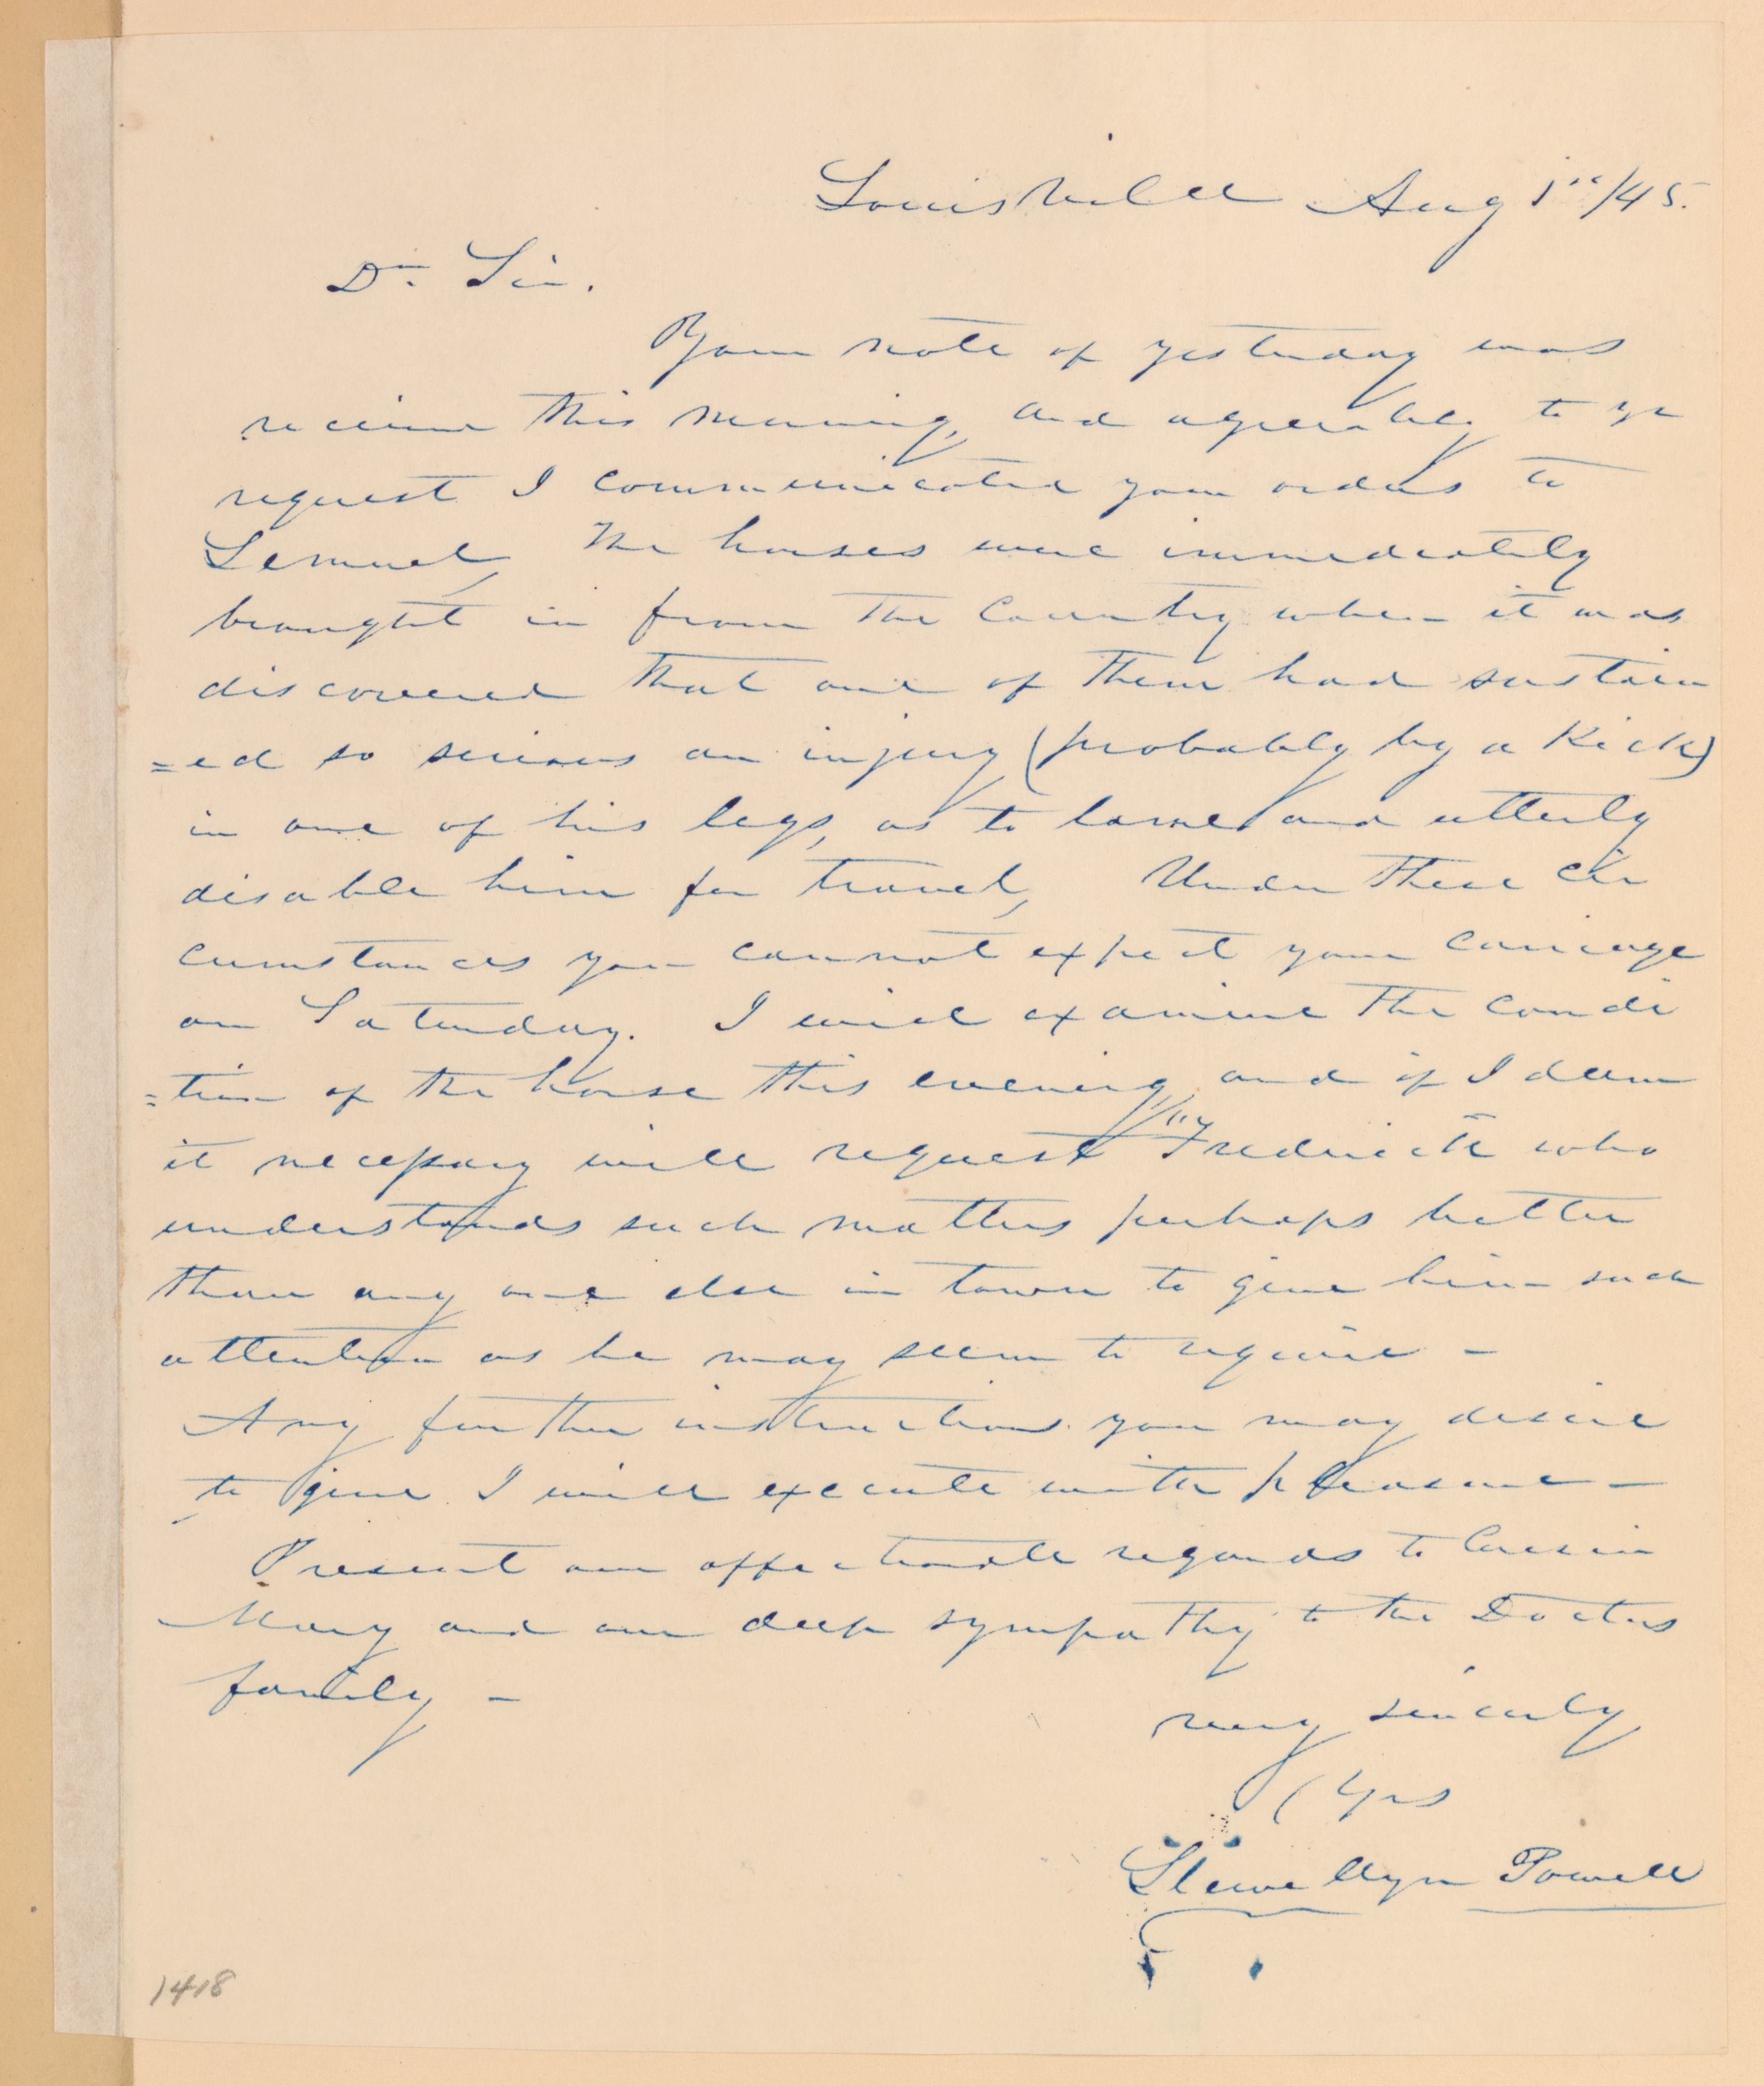 Louisville Aug 1st/45.
Dr. Sir.
Your note of yesterday was
received this morning, and agreeably to yr
request I communicated your orders to
Lemuel, The horses were immediately
brought in from the Country when it was
discovered that one of them had sustain
=ed so serious an injury (probably by a Kick)
in one of his legs, as to lame and utterly
disable him for travel, Under these cir
cumstances you cannot expect your carriage
on Saturday. I will examine the condi
=tion of the horse this evening, and if I deem
it necessary will request Frederick who
understands such matters perhaps better
than any one else in town to give him such
attention as he may seem to require -
Any further instructions you may desire
to give I will execute with pleasure -
Present our affectionate regards to Cousin
Mary and our deep sympathy to the Doctors
family -
very sincerly
Yrs
Llewellyn Powell
1418